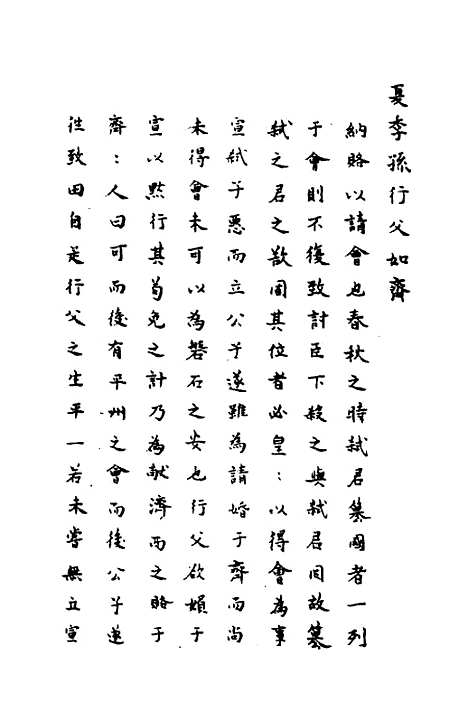 夏季孫行父如齊
納賂以請會也春秋之時弒君篡國者一列
于會則不復致討臣下殺之與弒君同故篡
弒之君之欲固其位者必皇〻以得會為事
宣弒子惡而立公子遂雖為請婚于齊而尚
未得會未可以為磐石之安也行父欲媚于
宣以㸃行其苟免之計乃為獻濟西之賂于
齊〻人曰可而後有平州之會而後公子遂
往致田自是行父之生平一若未嘗無立宣